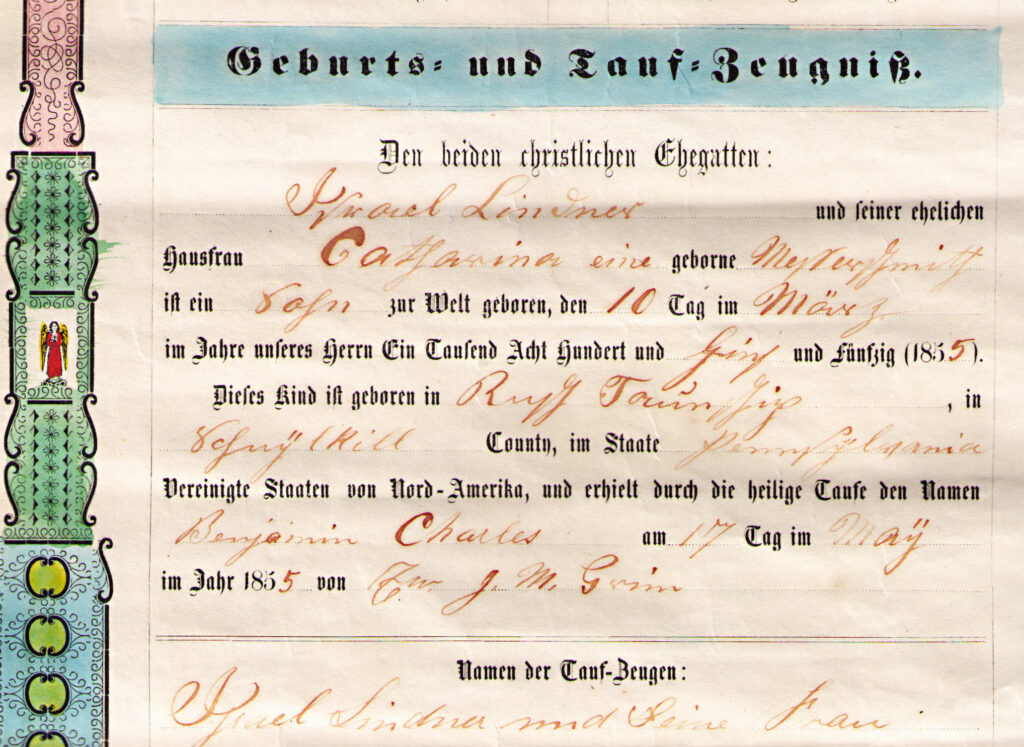 Geburts- und Tauf-Zeugniß.
Den beiden christlichen Ehegatten:
Israel Lindner und seiner ehelichen
Hausfrau Catharina eine geborne
ist ein Sohn zur Welt geboren, den 10 Tag im März
im Jahre unseres Herrn Ein Tausend Acht Hundert und und Fünfzig (1855).
Dieses Kind ist geboren in Rusch Taunschip, in
Schuÿlkill County, im Staate Pennsÿlvania
Vereinigte Staaten von Nord-Amerika, und erhielt durch die heilige Taufe den Namen
Benjamin Charles am 17 Tag im Maÿ
im Jahr 1855 von J. M. Grim
Namen der Tauf-Zeugen:
Israel Lindner und Seine Frau.